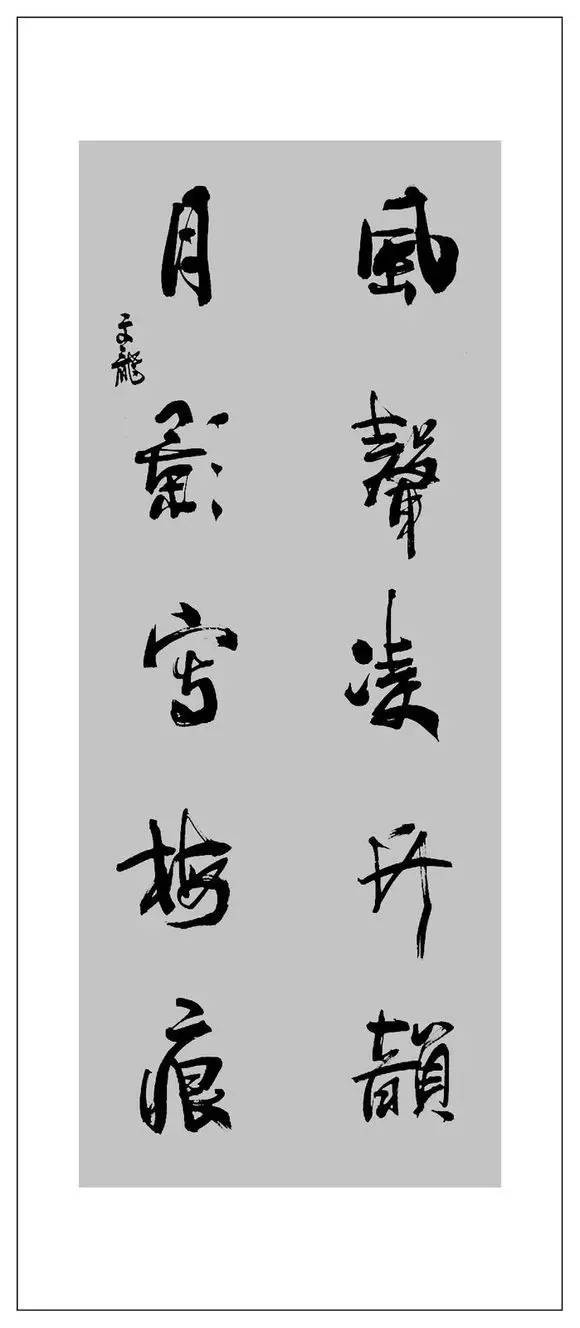 風聲凌竹韻
月影寫梅痕
文龍